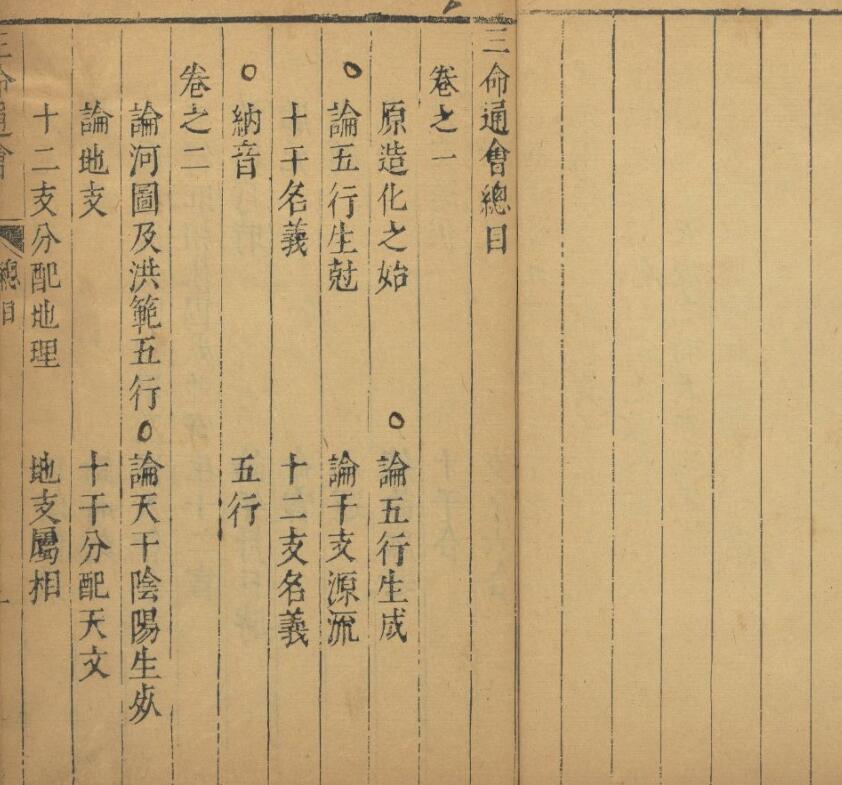 三命通會總目
卷之一
原造化之始 ○論五行生成
○論五行生尅 論干支源流
十干名義 十二支名義
○納音 五行
卷之二
論河圖及洪範五行 ○論天干陰陽生死
論地支 十干分配天文
十二支分配地理 地支屬相
三命通會 總目 一